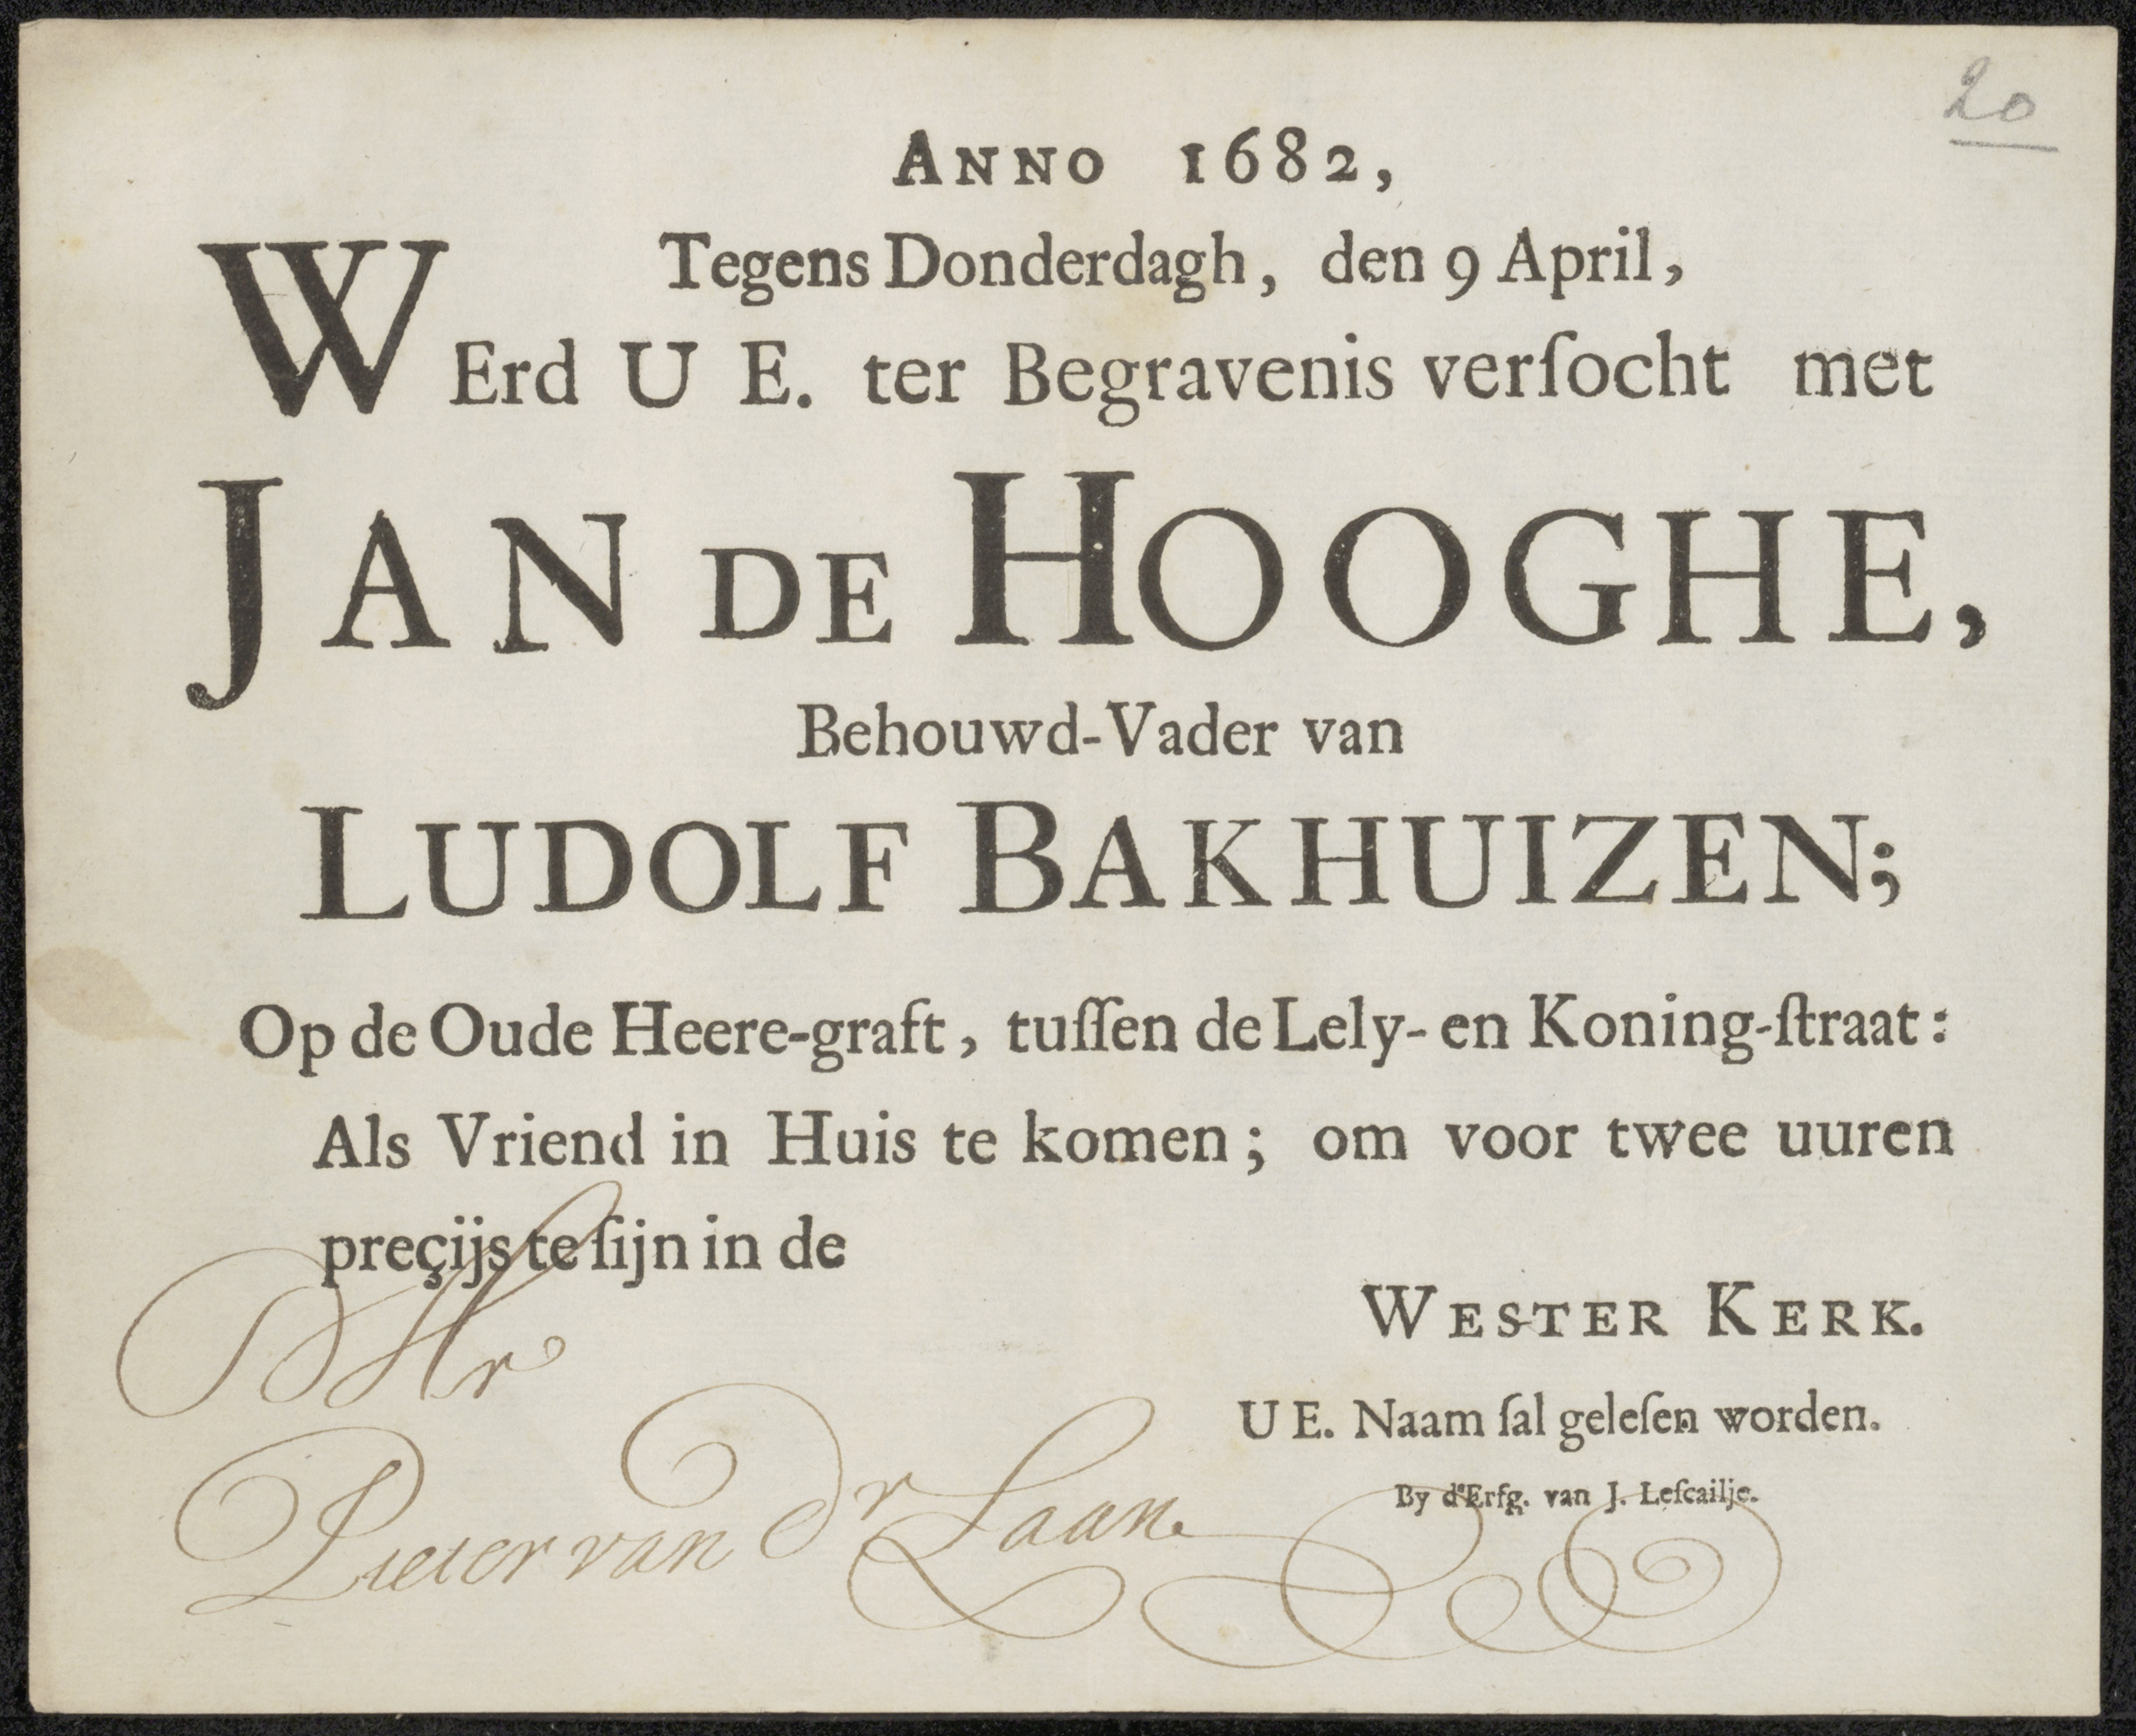 20
ANNO 1682,
Tegens Donderdagh, den 9 April,
WErd U E. ter Begravenis verſocht met
JAN DE HOOGHE,
Behouwd-Vader van
LUDOLF BAKHUIZEN;
Op de Oude Heere-graft, tuſſen de Lely- en Koning-ſtraat:
Als Vriend in Huis te komen; om voor twee uuren
preçijs te ſijn in de
WESTER KERK.
Hr
U E. Naam ſal geleſen worden.
Pieter van Dr Laan
By d'Erfg. van J. Leſcailje.